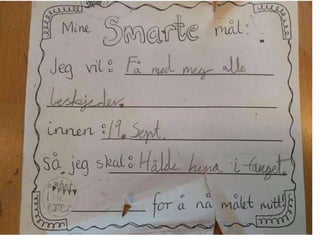 Mine Smarte mål:
Jeg vil: Få med meg alle
beskjeder.
innen: 19. Sept.
Så jeg skal: Holde hena i fanget.
for å nå målet mitt!